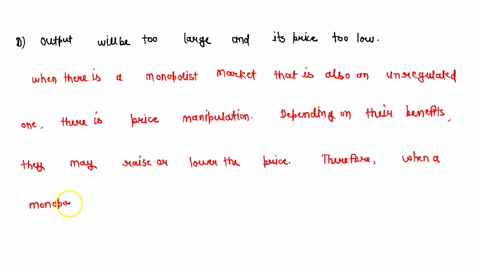 D) output will be too large and its price too low.
when there is a monopolist market that is also an unregulated
one, there is price manipulation. Depending on their benefits,
they may raise or lower the price. Therefore, when a
monopo